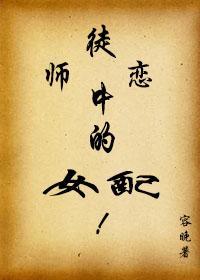 师徒恋
中的
女配!
容晚著